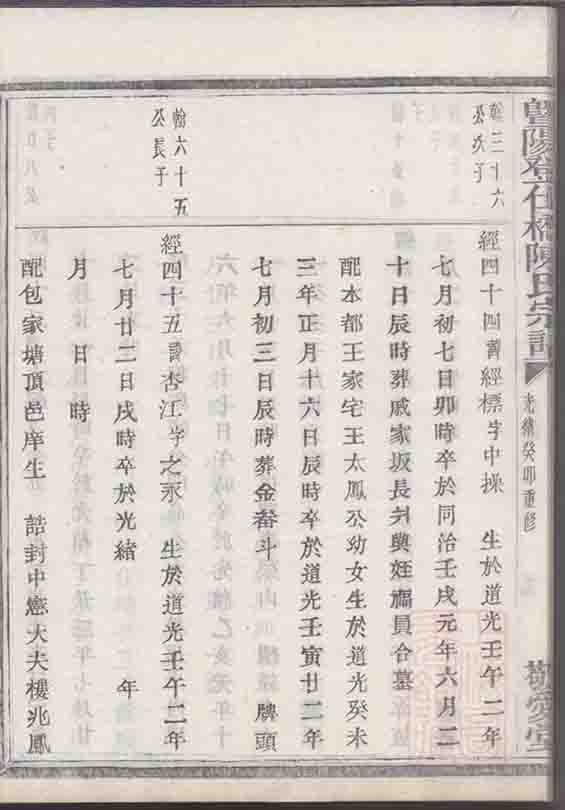 暨陽登仕橋陳氏宗譜
光緒癸卯重修
敬愛堂
翰三十六
公次子
經四十四諱經標字中操 生於道光壬午二年
七月初七日卯時卒於同治壬戌元年六月二
十日辰時葬戚家坂長弄與姪福員合墓
配本都王家宅王太鳳公幼女生於道光癸未
三年正月十六日辰時卒於道光壬寅廿二年
七月初三日辰時葬金畚斗 牌頭
翰六十五
公長子
經四十五諱杏江字之永 生於道光壬午二年
七月廿二日戌時卒於光緒 年
月 日 時
配包家塘頂邑庠生 誥封中憲大夫樓兆鳳